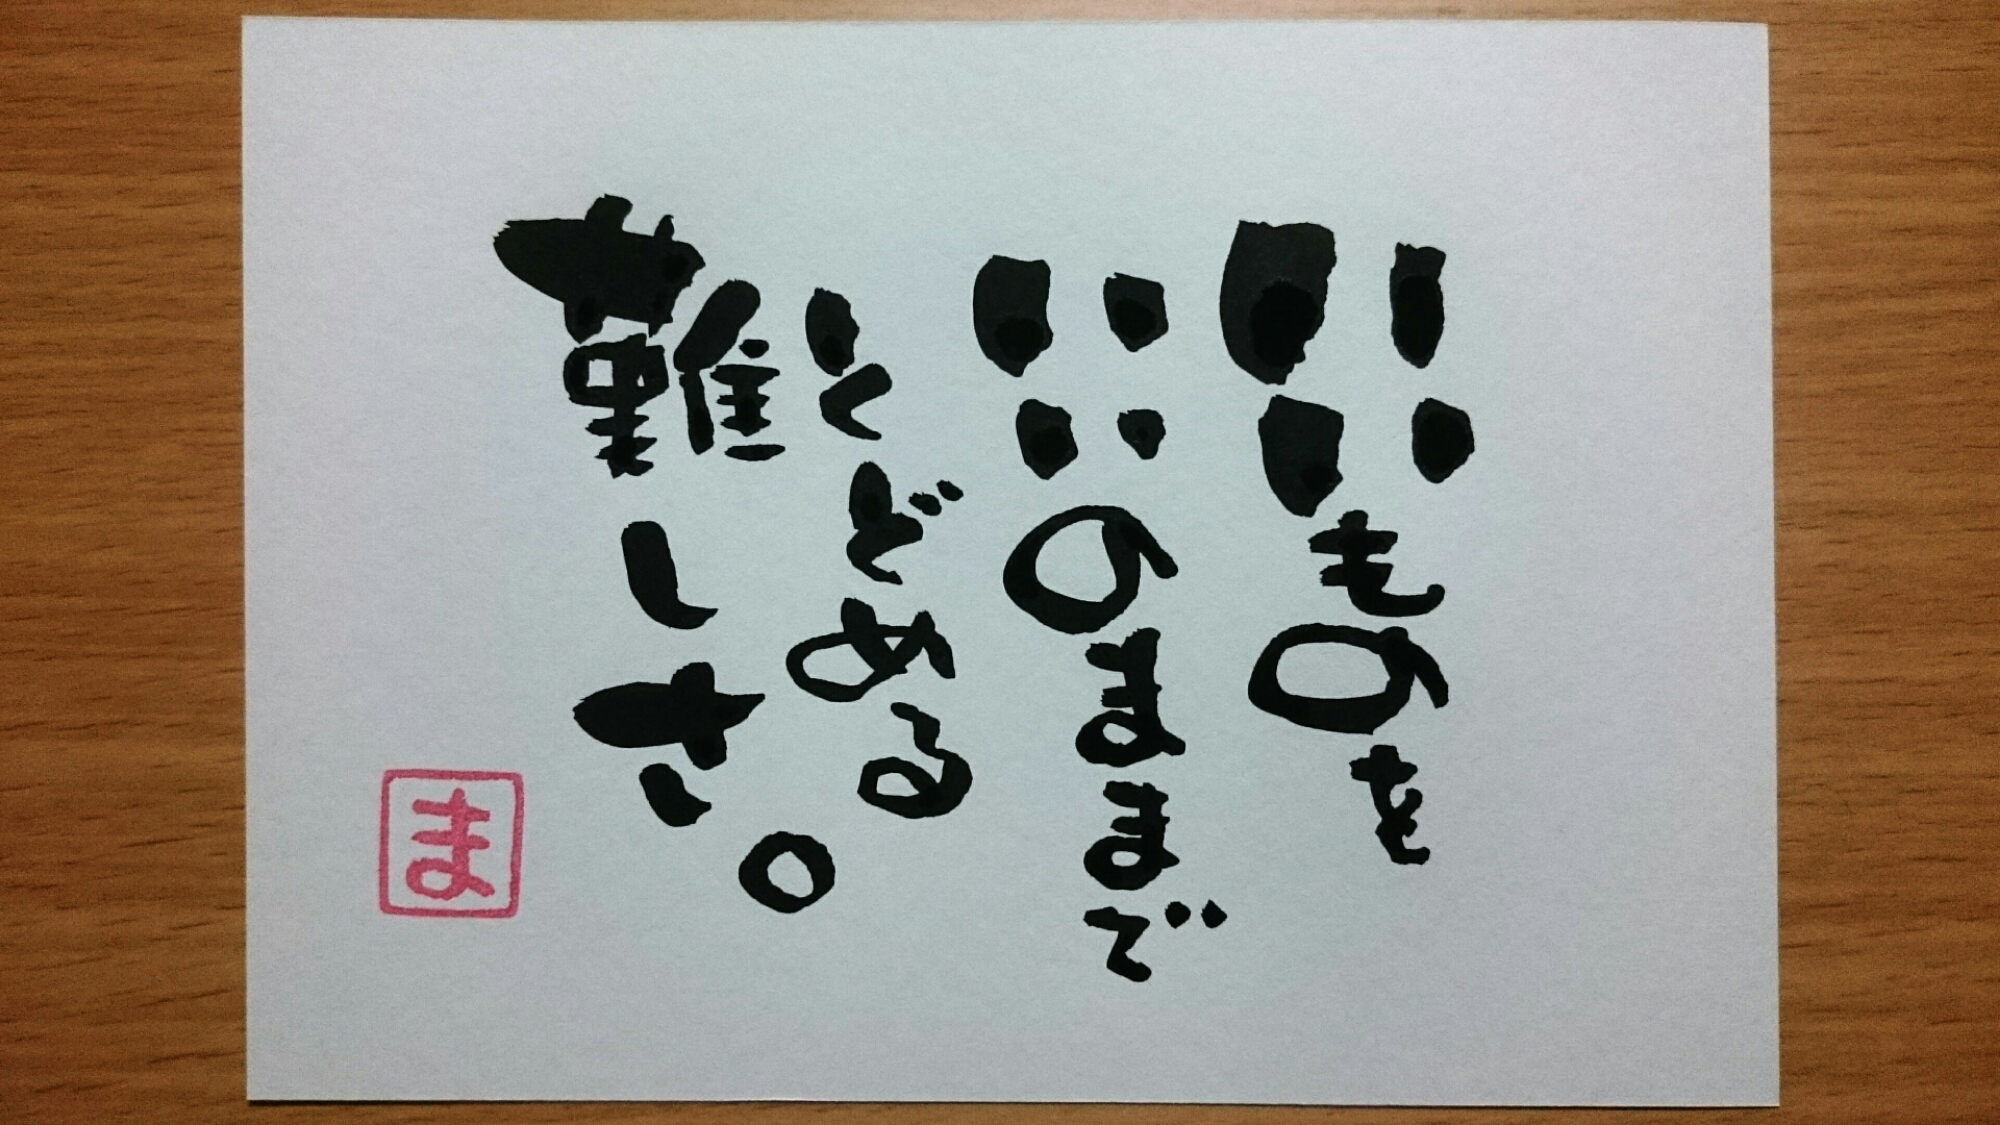 いいものを
いいのままで
とどめる
難しさ。
ま